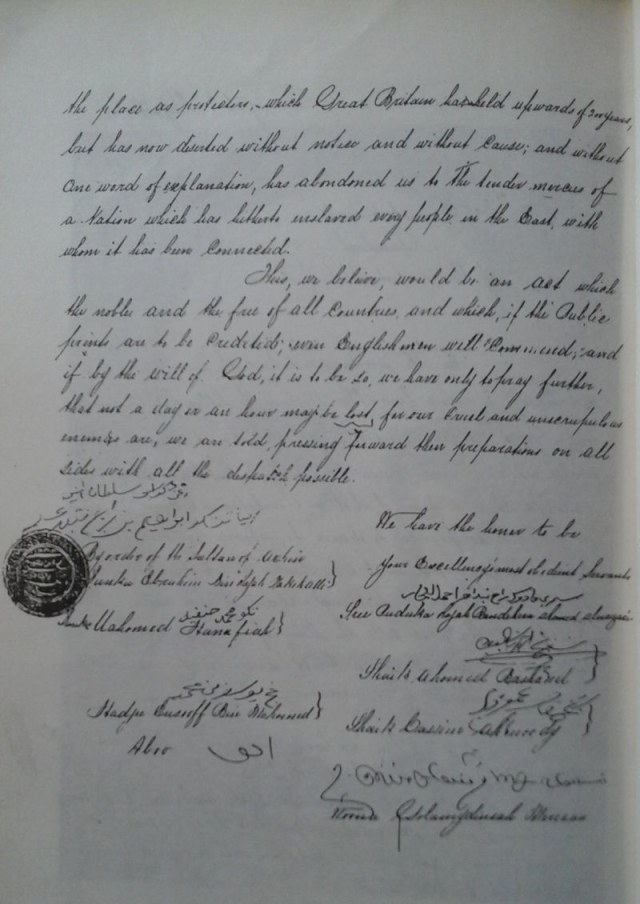 the place as protectors, which Great Britain has held upwards of 200 years,
but has now diserted without notice and without cause; and without
one word of explanation, has abandoned us to the tender mercies of
a Nation which has hitherto enslaved every people in the East, with
whom it has been connected.
This, we believe, would be an act which
the nobles and the free of all Countries, and which, if the Public
prints are to be credited; even Englishmen will "Commend," and
if by the will of God, it is to be so, we have only to pray further,
that not a day or an hour may be lost, for our cruel and unscrupulous
enemies are, we are told, pressing forward their preparations on all
sides with all the despatch possible.
We have the honor to be
Your Excellency's most obedient Servants
By order of the Sultan of Achin
Tunku Ebrahim Bin Rajah
Mahomed Hanafiah
Hadjee Eusoff Bin Mahomed
Aboo
ابو
Sree Paduka Rajah Bandahra Ahmed
Shaik Ahomed
Shaik Cassim